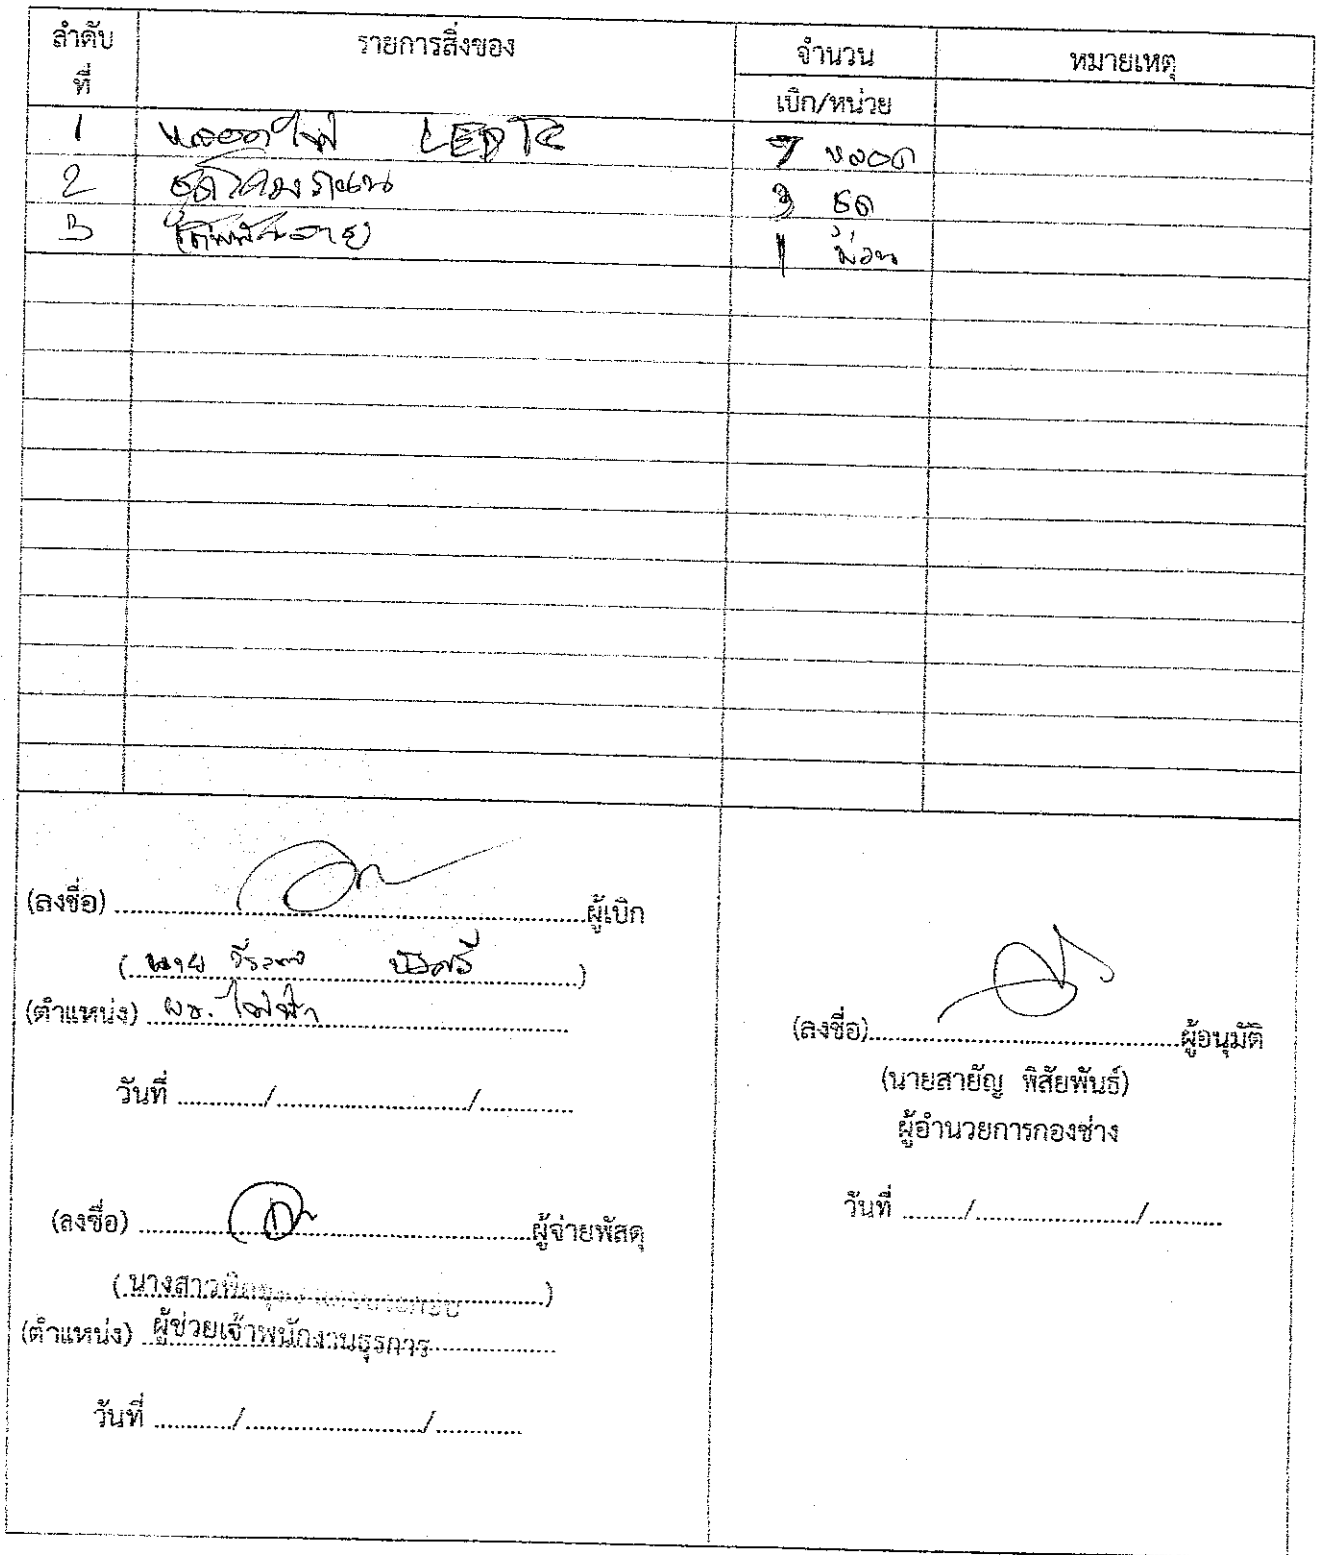 ลำดับ
ที่
รายการสิ่งของ
จำนวน
หมายเหตุ
เบิก/หน่วย
1 หลอดไฟ LED T8 7 หลอด
2 ชุดโคม 3 ชุด
3 เทปพันสาย 1 ม้วน
(ลงชื่อ) ผู้เบิก
(นาย)
(ตำแหน่ง) ผช. ไฟฟ้า
วันที่ ............/............................/.............
(ลงชื่อ) ผู้จ่ายพัสดุ
(นางสาว)
(ตำแหน่ง) ผู้ช่วยเจ้าพนักงานธุรการ
วันที่ ............/............................/.............
(ลงชื่อ) ผู้อนุมัติ
(นายสายัญ พิสัยพันธ์)
ผู้อำนวยการกองช่าง
วันที่ ........./........................./...........